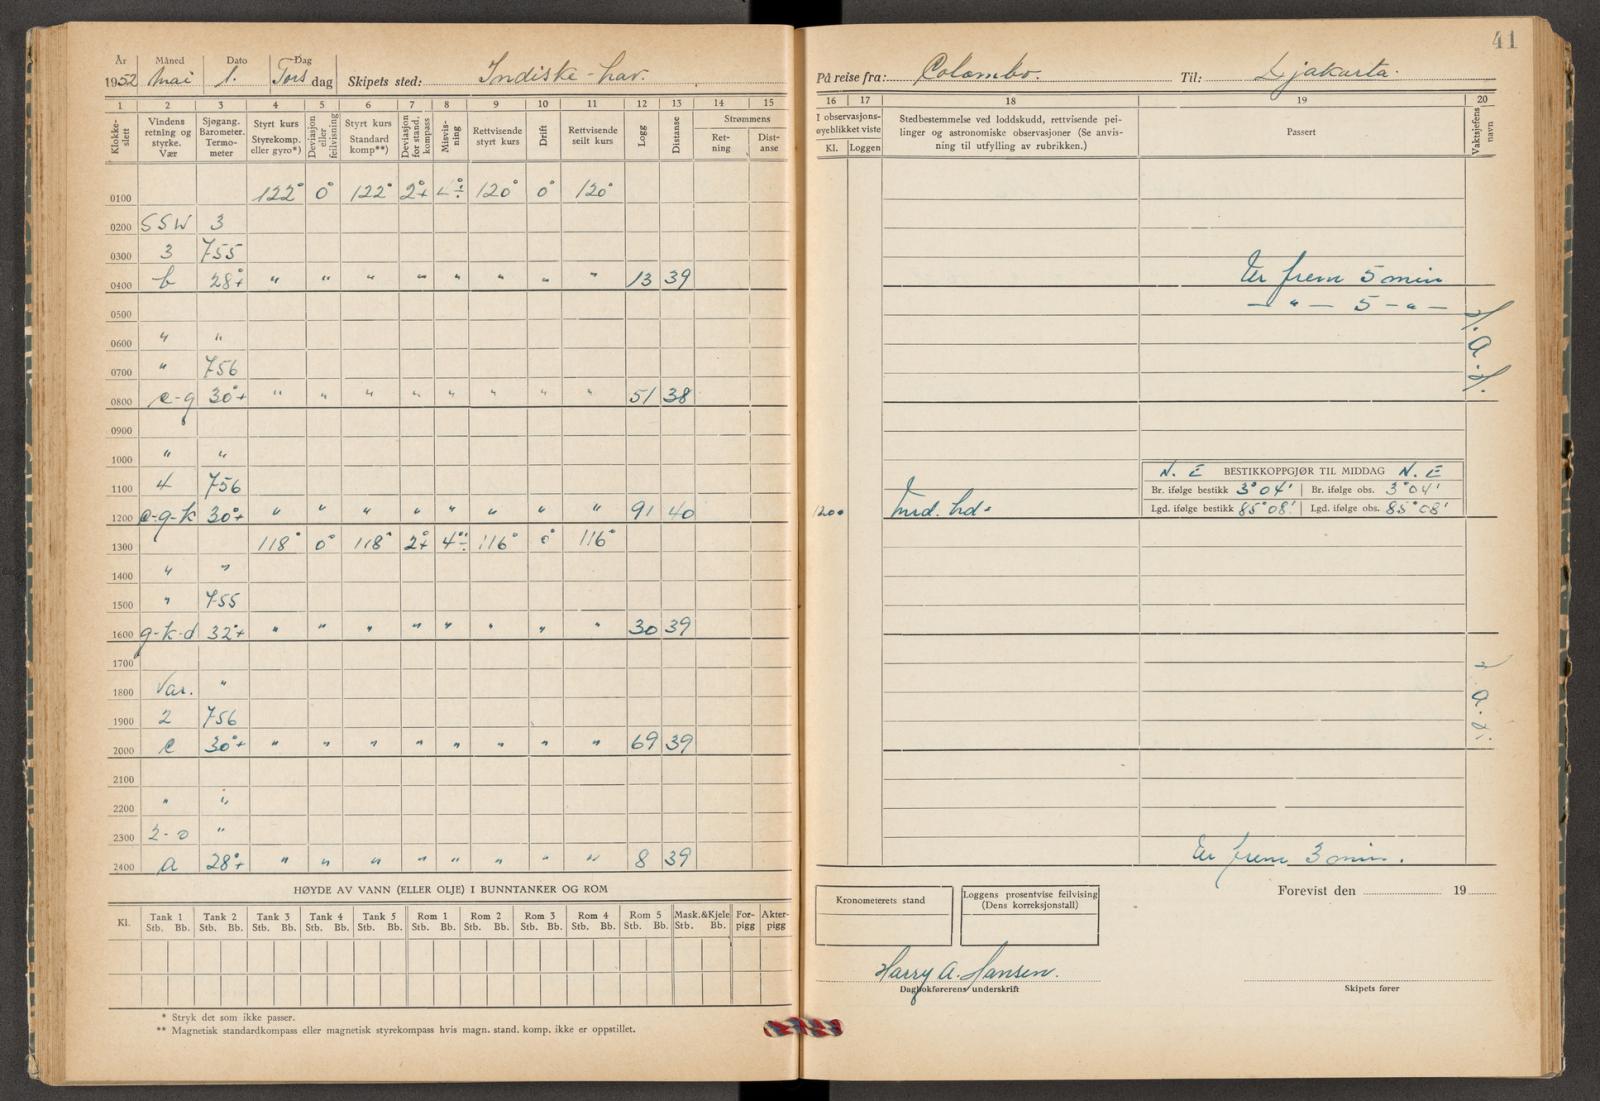 41
År Måned Dato Dag
1952 Mai 1. Tors dag Skipets sted: Indiske-hav.
På reise fra: Colombo. Til: Djakarta.
1 2 3 4 5 6 7 8 9 10 11 12 13 14 15
16 17 18 19 20
Klokke-slett
Vindens retning og styrke. Vær
Sjøgang. Barometer. Termo-meter
Styrt kurs Styrekomp. eller gyro*)
Deviasjon eller feilvisning
Styrt kurs Standard komp**)
Deviasjon for stand. kompass
Misvis-ning
Rettvisende styrt kurs
Drift
Rettvisende seilt kurs
Logg
Distanse
Strømmens
Ret-ning
Dist-anse
I observasjons-øyeblikket viste
Kl. Loggen
Stedbestemmelse ved loddskudd, rettvisende pei-
linger og astronomiske observasjoner (Se anvis-
ning til utfylling av rubrikken.)
Passert
Vaktsjefens navn
0100 122° 0° 122° 2°+ 4°÷ 120° 0° 120°
0200 SSW 3
0300 3 755
0400 b 28°+ " " " " " " " " 13 39
Ur frem 5 min
0500
— " — 5 — " —
0600 " "
0700 " 756
0800 c-q 30°+ " " " " " " " " 51 38
0900
1000 " "
1100 4 756
1200 c-q-k 30°+ " " " " " " " " 91 40
N. E BESTIKKOPPGJØR TIL MIDDAG N. E
Br. ifølge bestikk 3°04' Br. ifølge obs. 3°04'
1200 Mid. hd. Lgd. ifølge bestikk 85°08' Lgd. ifølge obs. 85°08'
1300 118° 0° 118° 2°+ 4°÷ 116° 0° 116°
1400 " "
1500 " 755
1600 q-k-d 32°+ " " " " " " " " 30 39
1700
1800 Var. "
1900 2 756
2000 c 30°+ " " " " " " " " 69 39
2100
2200 " "
2300 2-0 "
2400 a 28°+ " " " " " " " " 8 39
Ur frem 3 min.
HØYDE AV VANN (ELLER OLJE) I BUNNTANKER OG ROM
Kl. Tank 1 Tank 2 Tank 3 Tank 4 Tank 5 Rom 1 Rom 2 Rom 3 Rom 4 Rom 5 Mask.&Kjele For-pigg Akter-pigg
Stb. Bb. Stb. Bb. Stb. Bb. Stb. Bb. Stb. Bb. Stb. Bb. Stb. Bb. Stb. Bb. Stb. Bb. Stb. Bb. Stb. Bb.
* Stryk det som ikke passer.
** Magnetisk standardkompass eller magnetisk styrekompass hvis magn. stand. komp. ikke er oppstillet.
Kronometerets stand
Loggens prosentvise feilvising
(Dens korreksjonstall)
Forevist den 19
Harry A. Hansen.
Dagbokførerens underskrift
Skipets fører